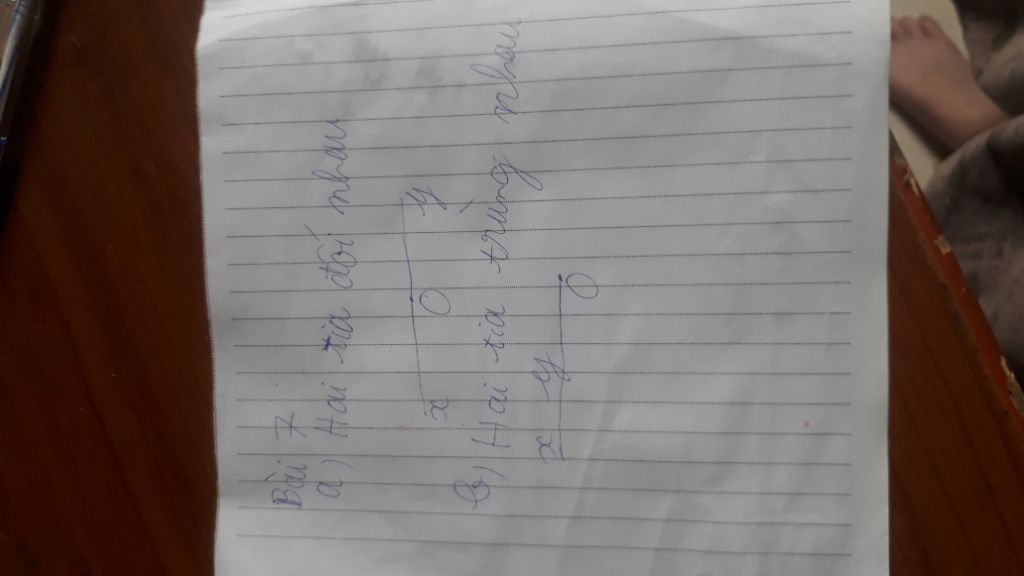 Bài 7
a) Hai tia đối nhau
x O y
b) Hai tia trùng nhau
x y O